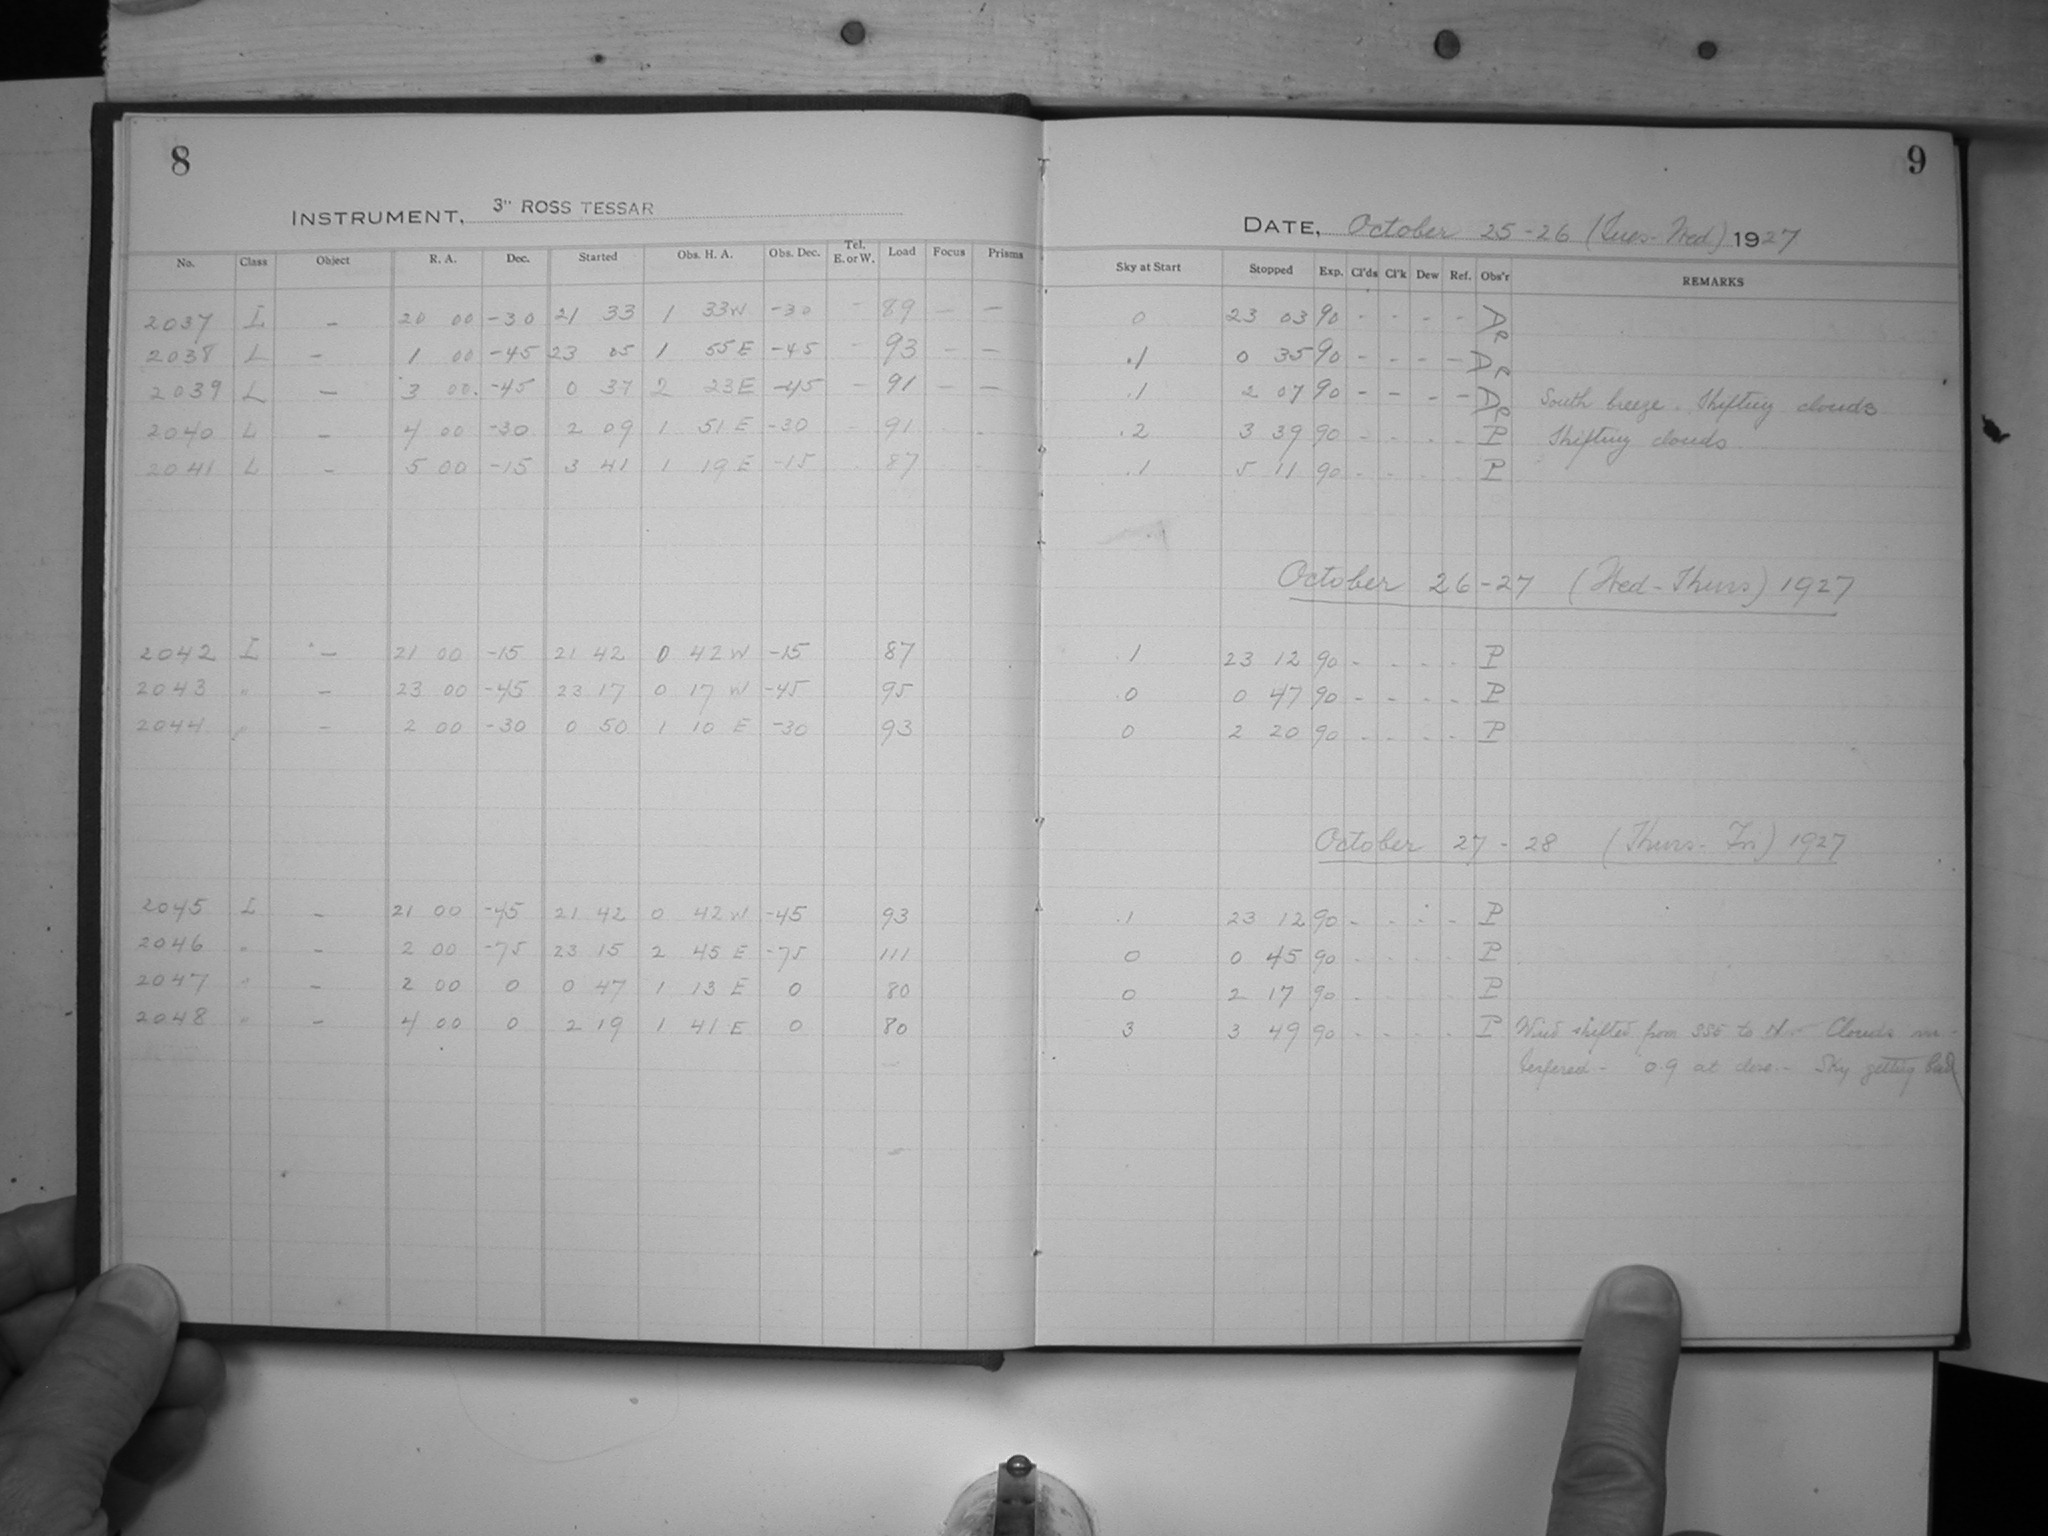 8
INSTRUMENT, 3" ROSS TESSAR
No. Class Object R. A. Dec. Started Obs. H. A. Obs. Dec. Tel. E. or W. Load Focus Prisms
2037 L - 20 00 -30 21 33 1 33 W -30 - 89 - -
2038 L - 1 00 -45 23 05 1 55 E -45 - 93 - -
2039 L - 3 00. -45 0 37 2 23 E -45 - 91 - -
2040 L - 4 00 -30 2 09 1 51 E -30 - 91 - -
2041 L - 5 00 -15 3 41 1 19 E -15 87 -
2042 L - 21 00 -15 21 42 0 42 W -15 87
2043 " - 23 00 -45 23 17 0 17 W -45 95
2044 " - 2 00 -30 0 50 1 10 E -30 93
2045 L - 21 00 -45 21 42 0 42 W -45 93
2046 " - 2 00 -75 23 15 2 45 E -75 111
2047 " - 2 00 0 0 47 1 13 E 0 80
2048 " - 4 00 0 2 19 1 41 E 0 80
9
DATE, October 25-26 (Tues-Wed) 1927
Sky at Start Stopped Exp. Cl'ds Cl'k Dew Ref. Obs'r REMARKS
0 23 03 90 - - - - DR
.1 0 35 90 - - - - DR
.1 2 07 90 - - - - DR South breeze. Shifting clouds
.2 3 39 90 - - - - P Shifting clouds
.1 5 11 90 - - - - P
October 26-27 (Wed-Thurs) 1927
.1 23 12 90 - - - - P
.0 0 47 90 - - - - P
0 2 20 90 - - - - P
October 27 - 28 (Thurs-Fri) 1927
.1 23 12 90 - - - - P
0 0 45 90 - - - - P
0 2 17 90 - - - - P
3 3 49 90 - - - - P Wind shifted from SSE to Clouds in-
terfered - 0.9 at close - Sky getting bad